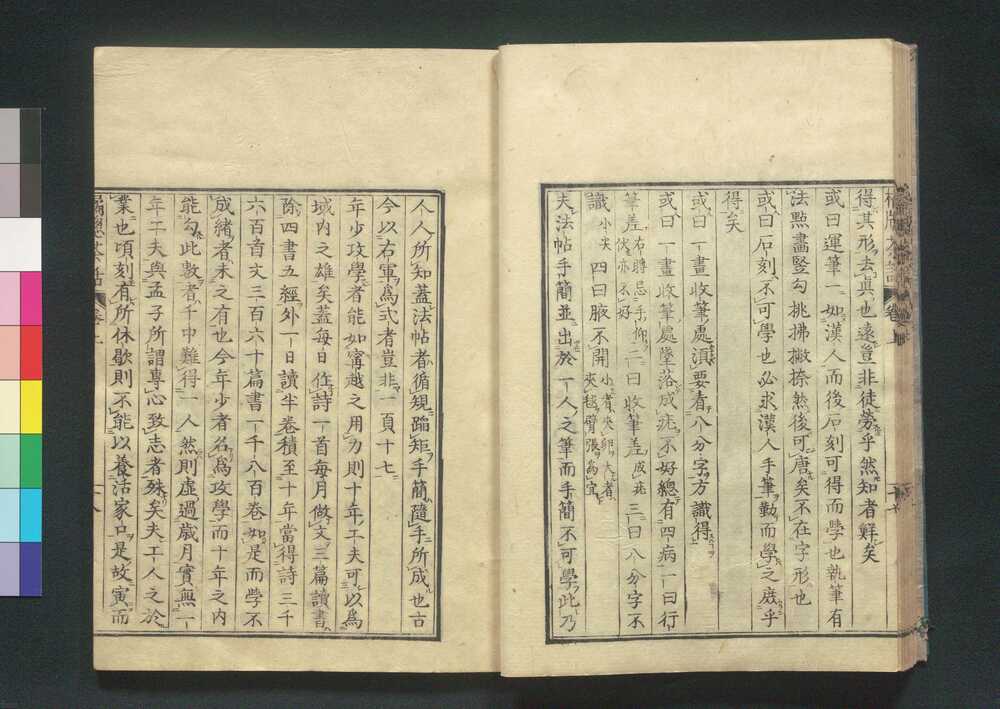 得其形去眞也遠豈非徒勞乎然知者鮮矣
或曰運筆一如漢人而後石刻可得而學也執筆有
法點畫竪勾挑拂撇捺然後可唐矣不在字形也
或曰石刻不可學也必求漢人手筆勤而學之庶乎
得矣
或曰一畫收筆處須要看八分字方識得
或曰一畫收筆處墜落成疵不好總有四病一曰行
筆差右聘忌手仰伏亦不好二曰收筆差成疵三曰八分字不
識小夾四曰腋不開小者夾卵大者夾毬臂張爲宜
夫法帖手簡並出於一人之筆而手簡不可學此乃
人人所知蓋法帖者循規蹈矩手簡隨手所成也古
今以右軍爲式者豈非一頁十七
年少攻學者能如甯越之用力則十年工夫可以爲
域內之雄矣蓋每日作詩一首每月做文三篇讀書
除四書五經外一日讀半卷積至十年當得詩三千
六百首文三百六十篇書一千八百卷如是而學不
成緒者未之有也今年少者名爲攻學而十年之內
能勾此數者千中難得一人然則虛過歲月實無一
年工夫與孟子所謂專心致志者殊矣夫工人之於
業也頃刻有所休歇則不能以養活家口是故寅而